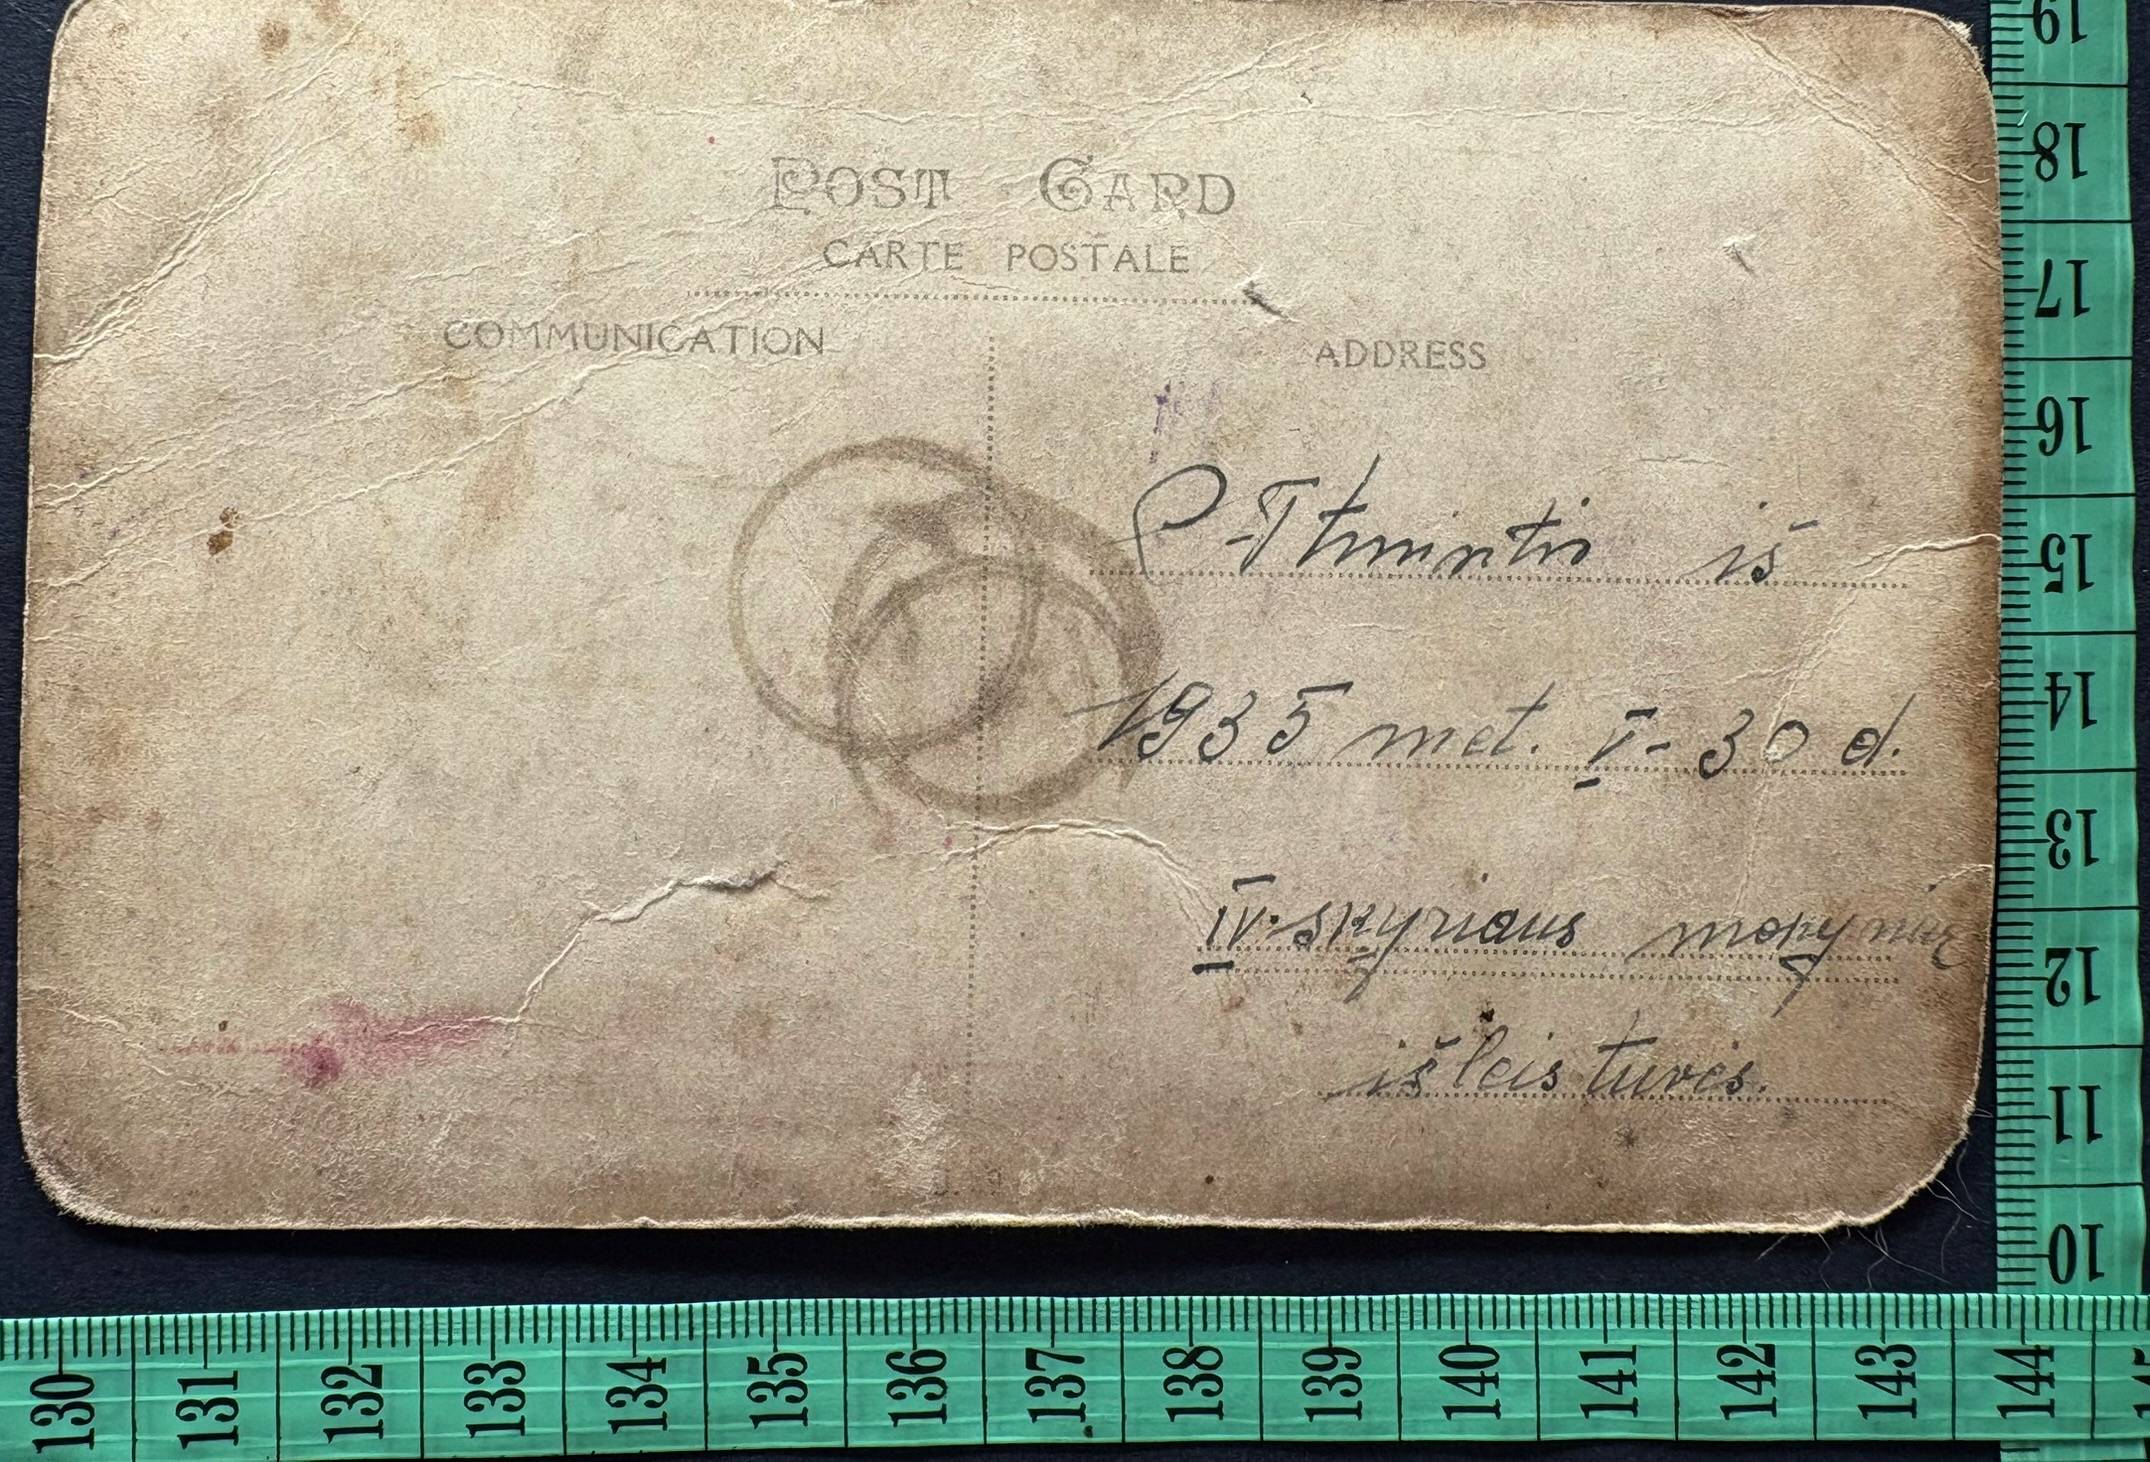 POST CARD
CARTE POSTALE
COMMUNICATION
ADDRESS
iš
1935 met. V-30 d.
IV. skyriaus mokynių
išleistuvės.
19
18
17
16
15
14
13
12
11
10
130 131 132 133 134 135 136 137 138 139 140 141 142 143 144